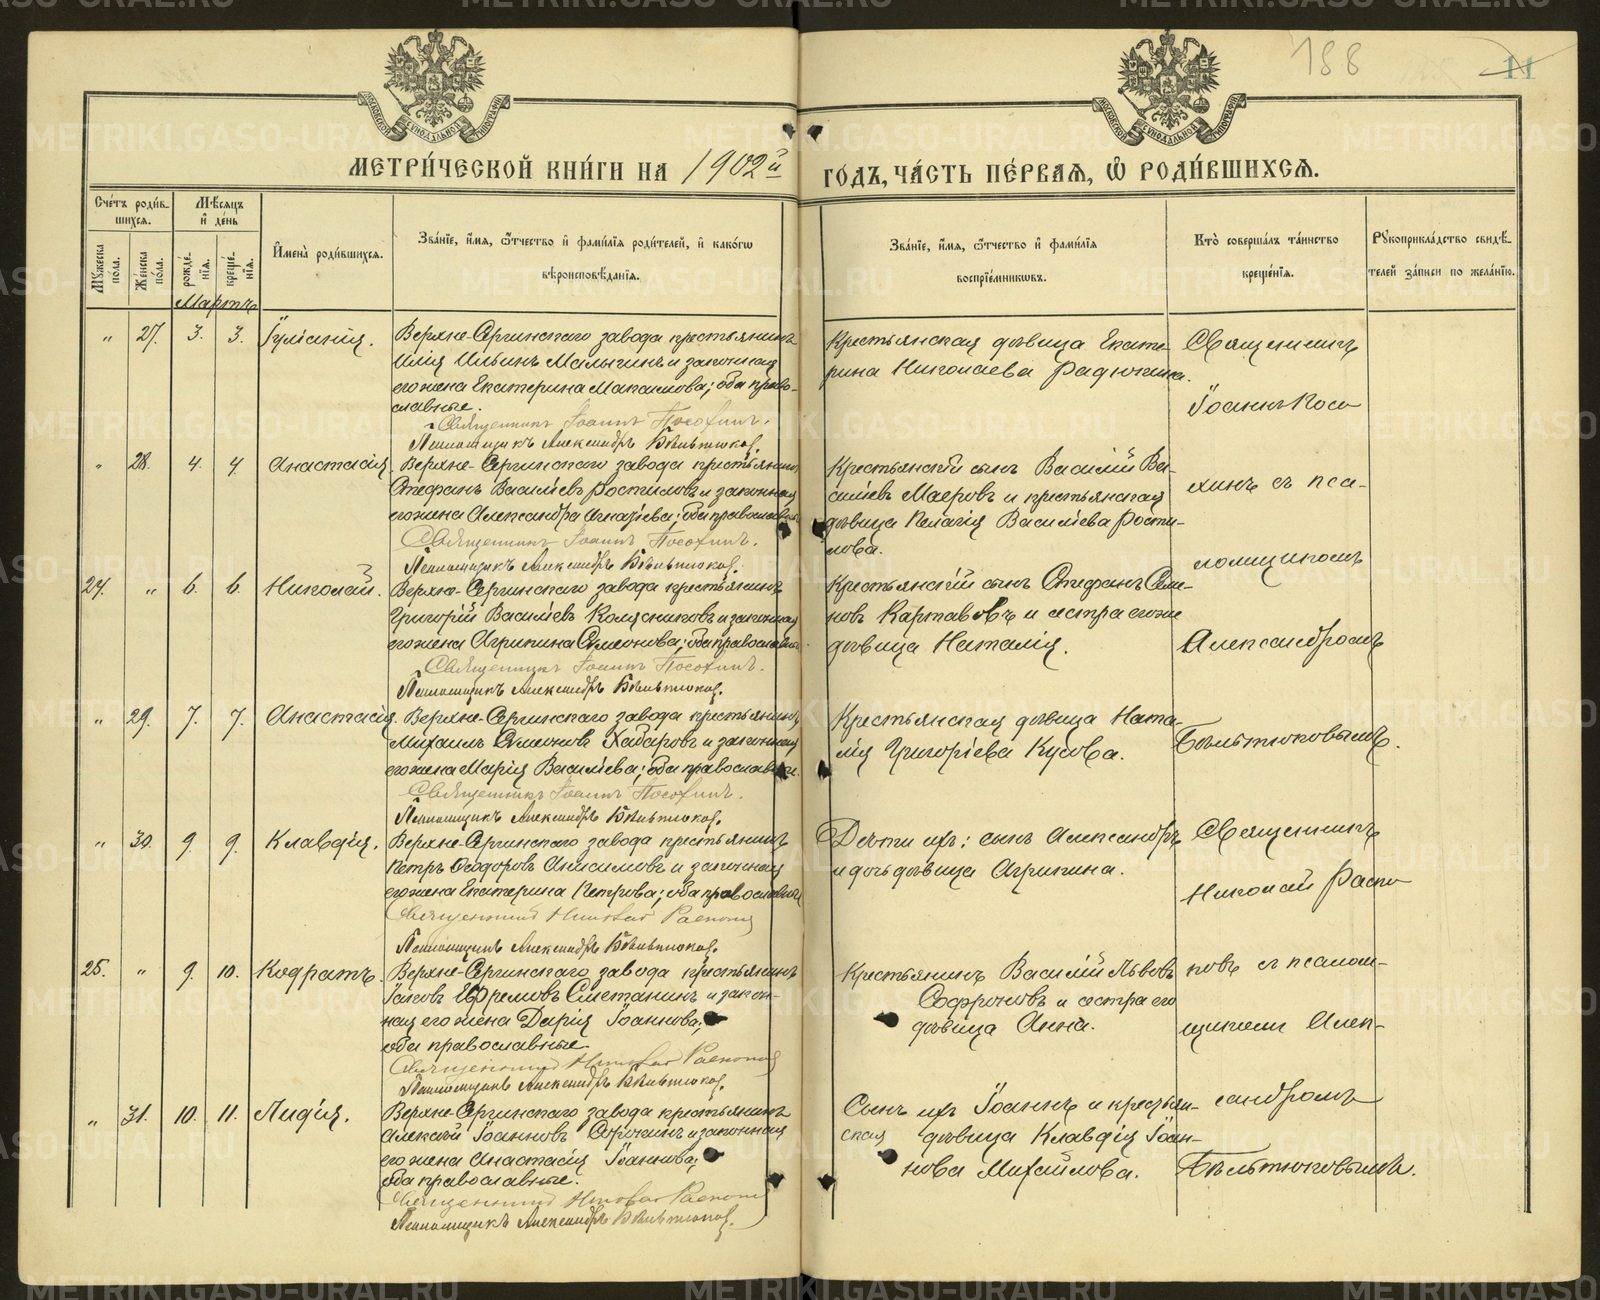 188
11
МЕТРИ́ЧЕСКОЙ КНИ́ГИ НА 1902й ГОДЪ, ЧА́СТЬ ПЕ́РВАѦ, Ѡ РОДИ́ВШИХСѦ.
Сче́тъ роди́в-
шихсѧ.
Мꙋжеска по́ла.
Же́нска по́ла.
Мѣ́сѧцъ
и де́нь
рожде́-
нїѧ.
креще́-
нїѧ.
И҆мена̀ роди́вшихсѧ.
Зва́нїе, и҆́мѧ, ѻ҆́тчество и҆ фами́лїѧ роди́телей, и҆ како́гѡ
вѣроисповѣ́данїѧ.
Зва́нїе, и҆́мѧ, ѻ҆́тчество и҆ фами́лїѧ
воспрїе́мникѡвъ.
Кто̀ соверша́лъ та́инство
креще́нїѧ.
Рꙋкоприкла́дство свидѣ́-
телей за́писи по жела́нїю.
Мартъ
„ 27. 3. 3. Іуліанія.
Верхне-Сергинскаго завода крестьянинъ
Илія Ильинъ Малыгинъ и законная
его жена Екатерина Максимова; оба право-
славные.
Священникъ Іоаннъ Посохинъ.
Псаломщикъ Александръ Бѣльтюковъ.
Крестьянская дѣвица Екате-
рина Николаева Радюкина.
Священникъ
Іоаннъ Посо-
„ 28. 4. 4. Анастасія.
Верхне-Сергинскаго завода крестьянинъ
Стефанъ Васильевъ Ростиловъ и законная
его жена Александра Игнатіева; оба православные
Священникъ Іоаннъ Посохинъ.
Псаломщикъ Александръ Бѣльтюковъ.
Крестьянскій сынъ Василій Ва-
сильевъ Маеровъ и крестьянская
дѣвица Пелагія Васильева Рости-
лова.
хинъ съ пса-
ломщикомъ
24. „ 6. 6. Николай.
Верхне-Сергинскаго завода крестьянинъ
Григорій Васильевъ Колясниковъ и законная
его жена Агрипина Симеонова; оба православные
Священникъ Іоаннъ Посохинъ.
Псаломщикъ Александръ Бѣльтюковъ.
Крестьянскій сынъ Стефанъ Симе-
новъ Картавовъ и сестра его же
дѣвица Наталія.
Александромъ
„ 29. 7. 7. Анастасія.
Верхне-Сергинскаго завода крестьянинъ
Михаилъ Симеоновъ Хабаровъ и законная
его жена Марія Васильева; оба православные.
Священникъ Іоаннъ Посохинъ.
Псаломщикъ Александръ Бѣльтюковъ.
Крестьянская дѣвица Ната-
лія Григоріева Кусова.
Бѣльтюковымъ.
„ 30. 9. 9. Клавдія.
Верхне-Сергинскаго завода крестьянинъ
Петръ Ѳеодоровъ Анисимовъ и законная
его жена Екатерина Петрова; оба православные
Священникъ Николай Распоп
Псаломщикъ Александръ Бѣльтюковъ.
Дѣти ихъ: сынъ Александръ
и дочь дѣвица Агрипина.
Священникъ
Николай Распо-
25. „ 9. 10. Кодратъ.
Верхне-Сергинскаго завода крестьянинъ
Іаковъ Ефремовъ Сметанинъ и закон-
ная его жена Дарія Іоаннова;
оба православные.
Священникъ Николай Распопов
Псаломщикъ Александръ Бѣльтюковъ.
Крестьянинъ Василій Львовъ
Софроновъ и сестра его
дѣвица Анна.
повъ съ псалом-
щикомъ Алек-
„ 31. 10. 11. Лидія.
Верхне-Сергинскаго завода крестьянинъ
Алексій Іоанновъ Сорокинъ и законная
его жена Анастасія Іоаннова;
оба православные.
Священникъ Николай Распоп
Псаломщикъ Александръ Бѣльтюковъ.
Сынъ ихъ Іоаннъ и крестьян-
ская дѣвица Клавдія Іоан-
нова Михайлова.
сандромъ
Бѣльтюковымъ.
METRIKI.GASO-URAL.RU